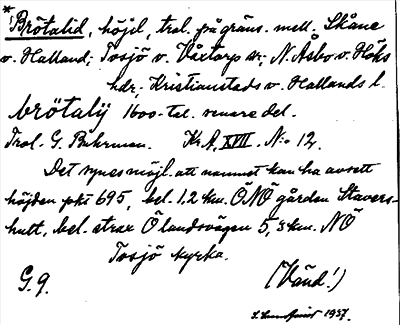 *Brötalid, höjd, trol. på gräns. mell. Skåne
o. Halland; Tosjö o. Våxtorp sn; N. Åsbo o. Höks
hdr; Kristianstads o. Hallands l.
brötalÿ 1600-tal. senare del.
Trol. G. Buhrman. Kr.A, XVII. N:o 12.
Det synes möjl. att namnet kan ha avsett
höjden pkt 695, bel. 1,2 km. ÖNÖ gården Stavers-
hult, bel. strax Ö landsvägen 5,3 km. NÖ
Tosjö kyrka.
G. 9. (Vänd!)
1937.